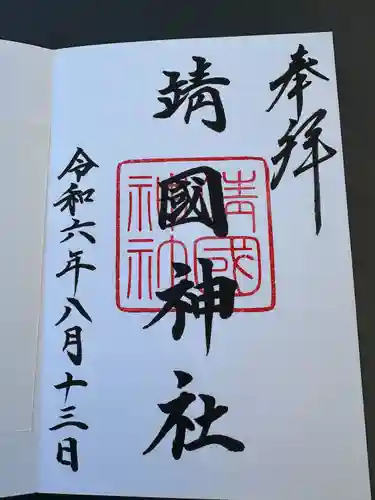 奉拝
靖國神社
靖國
神社
令和六年八月十三日